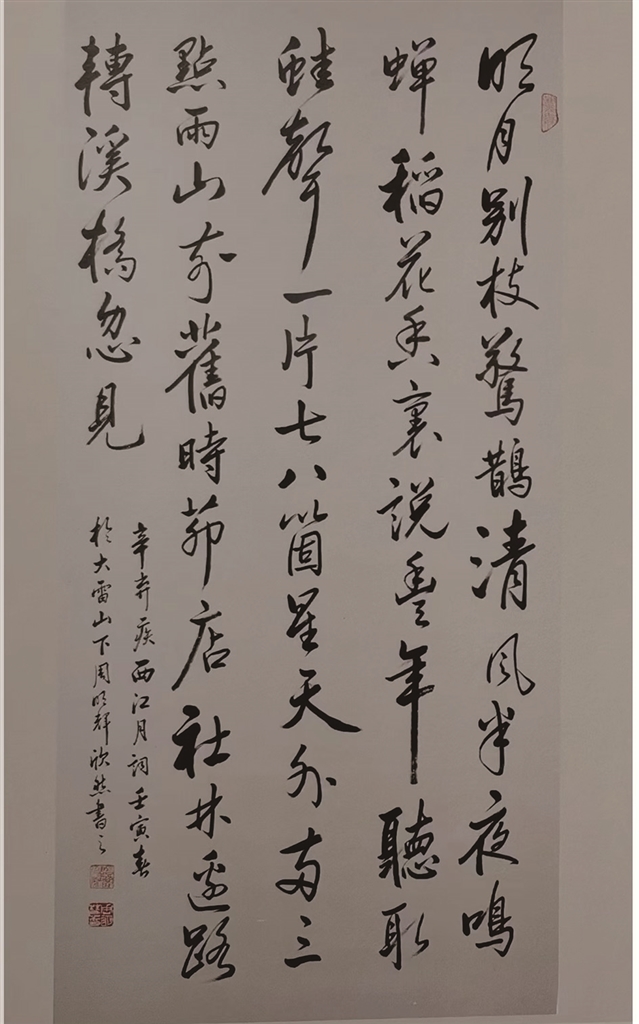 明月别枝驚鵲清風半夜鳴
蝉稻花香裏説豊年聽取
蛙聲一片七八箇星天外两三
點雨山前舊時茆店社林邊路
轉溪橋忽見
辛弃疾西江月詞壬寅春
於大雷山下周明輝欣然書之